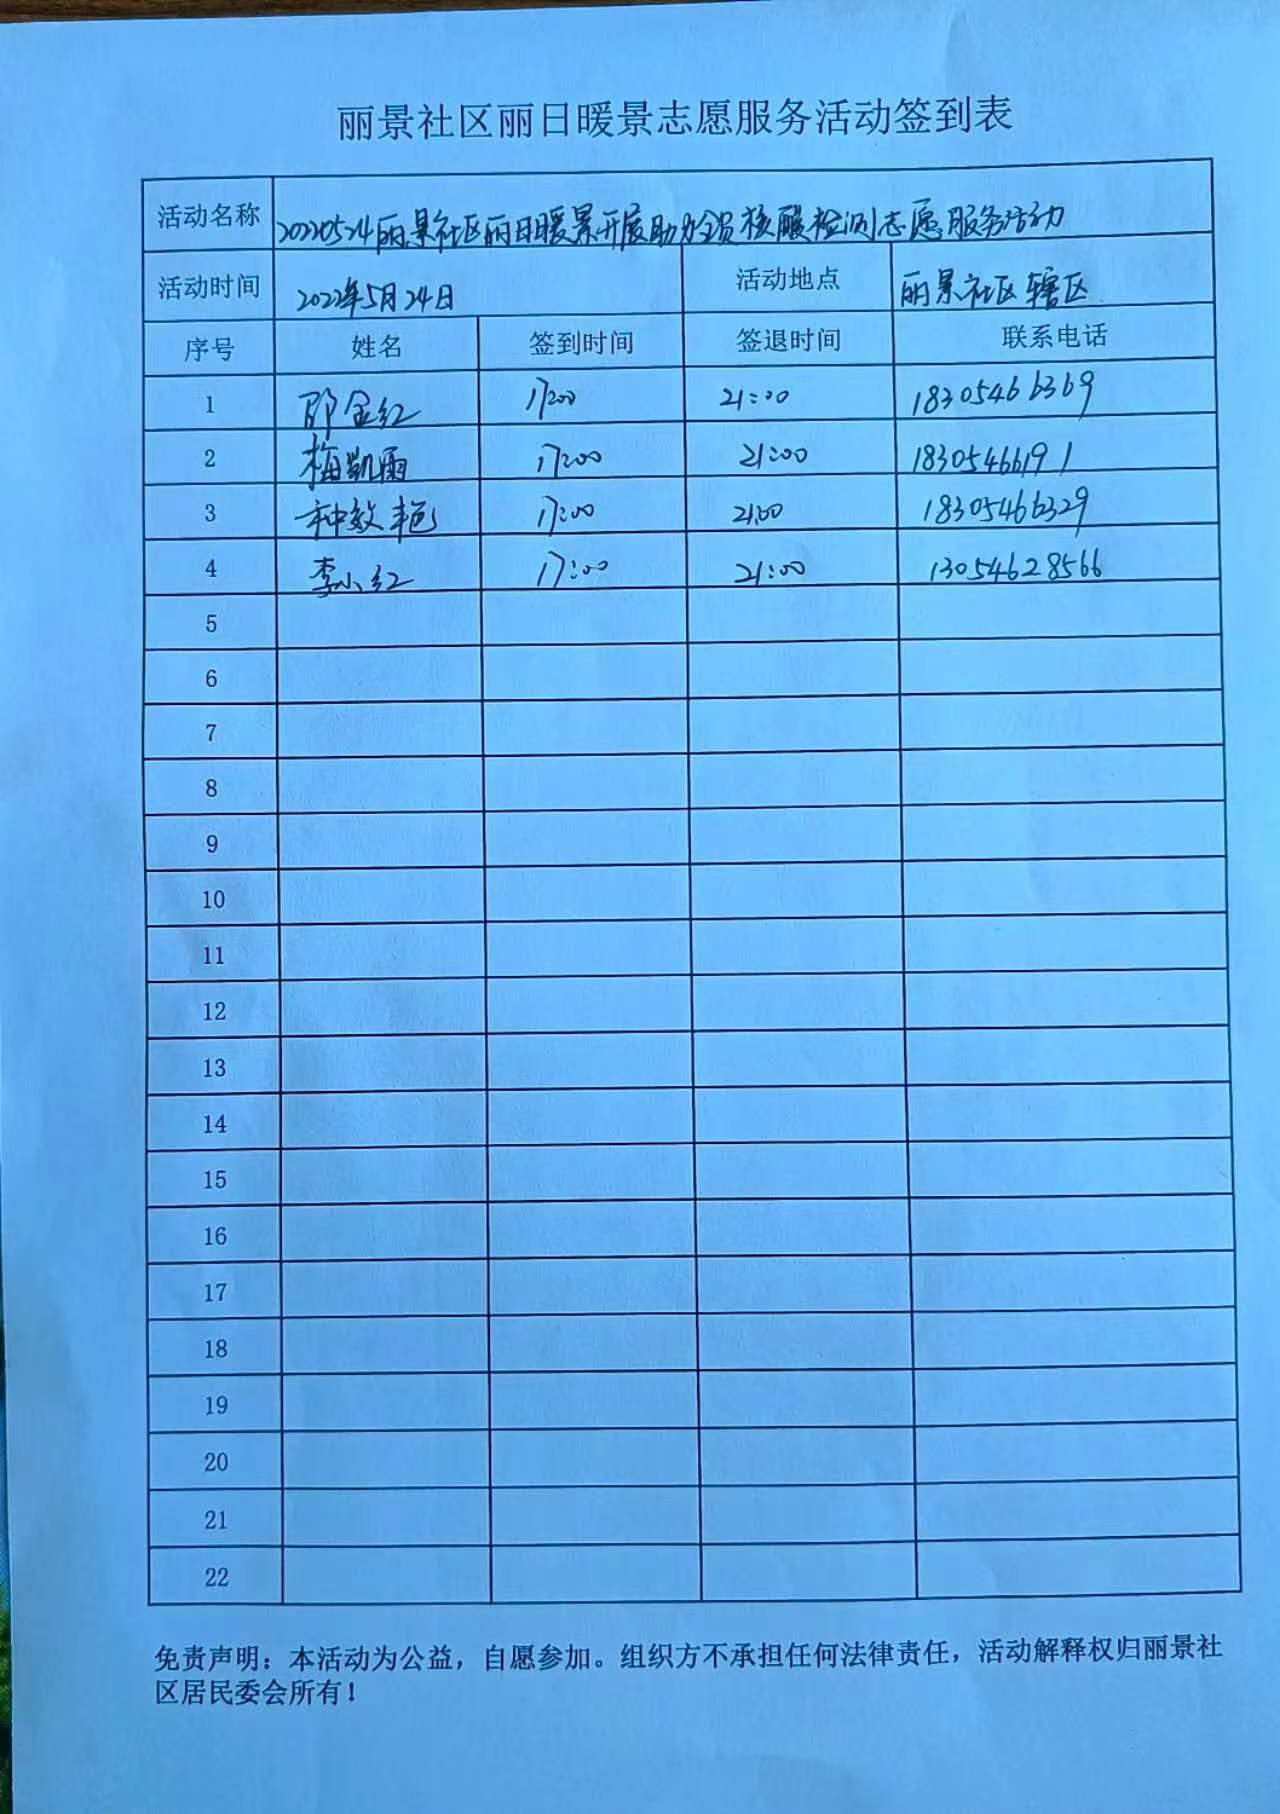 丽景社区丽日暖景志愿服务活动签到表
活动名称 20220524丽景社区丽日暖景开展助力全员核酸检测志愿服务活动
活动时间 2022年5月24日 活动地点 丽景社区辖区
序号 姓名 签到时间 签退时间 联系电话
1 邵金红 17:00 21:00 18305466369
2 梅凯雨 17:00 21:00 18305466191
3 种效艳 17:00 21:00 18305466329
4 李小红 17:00 21:00 13054628566
5
6
7
8
9
10
11
12
13
14
15
16
17
18
19
20
21
22
免责声明：本活动为公益，自愿参加。组织方不承担任何法律责任，活动解释权归丽景社
区居民委会所有！